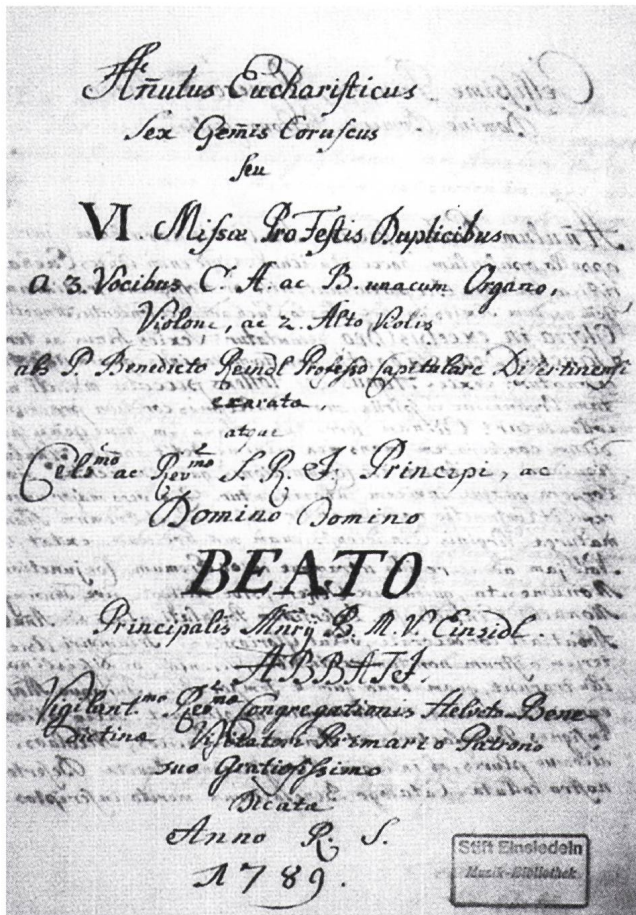 Añulus Eucharisticus
sex Gem̄is Coruscus
seu
VI Missæ Pro Festis Duplicibus
a 3. Vocibus C. A. ac B. unacum Organo,
Violone, ac 2. Alto Violis
abs P. Benedicto Reindl Professo Capitulare Disertinensi
exarata
atque
Cels.mo ac Rev.mo S. R. I. Principi, ac
Domino Domino
BEATO
Principalis Mnrÿ B. M. V. Einsidl.
ABBATI.
Vigilant.mo Congregationis Helveto-Bene
dictinæ Visitatori Primario Patrono
suo Gratiosissimo
Dicata
Anno R. S.
1789.
Stift Einsiedeln
Musik-Bibliothek